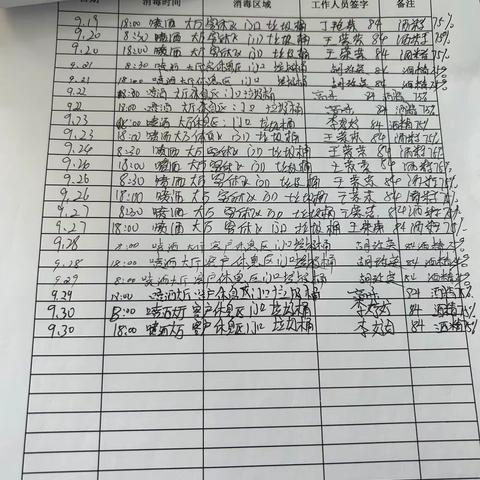 日期 消毒时间 消毒区域 工作人员签字 备注
9.19 18:00 喷洒 大厅 客休区 门口 垃圾桶 84 酒精75%
9.20 8:30 喷洒 大厅 客休区 门口 垃圾桶 王荣荣 84 酒精75%
9.20 18:00 喷洒 大厅 客休区 门口 垃圾桶 王荣荣 84 酒精75%
9.21 8:30 喷洒 大厅 休息区 门口 垃圾桶 84 酒精75%
9.21 18:00 喷洒 大厅 休息区 门口 垃圾桶 84 酒精75%
9.22 8:30 喷洒 大厅 休息区 门口 垃圾桶 84 酒精 75%
9.22 18:00 喷洒 大厅 休息区 门口 垃圾桶 84 酒精 75%
9.23 喷洒 大厅 休息区 门口 垃圾桶 84 酒精75%
9.23 18:00 喷洒 大厅 休息区 门口 垃圾桶 王荣荣 84 酒精75%
9.24 8:30 喷洒 大厅 客休区 门口 垃圾桶 王荣荣 84 酒精75%
9.26 18:00 喷洒 大厅 客休区 门口 垃圾桶 王荣荣 84 酒精75%
9.26 8:30 喷洒 大厅 客休区 门口 垃圾桶 王荣荣 84 酒精75%
9.26 18:00 喷洒 大厅 客休区 门口 垃圾桶 王荣荣 84 酒精75%
9.27 8:30 喷洒 大厅 客休区 门口 垃圾桶 王荣荣 84 酒精75%
9.27 18:00 喷洒 大厅 客休区 门口 垃圾桶 王荣荣 84 酒精75%
9.28 喷洒 大厅 客户休息区 门口 垃圾桶 84 酒精75%
9.28 18:00 喷洒 大厅 客户休息区 门口 垃圾桶 84 酒精75%
9.29 8:00 喷洒 大厅 客户休息区 门口 垃圾桶 84 酒精75%
9.29 18:00 喷洒 大厅 客户休息区 门口 垃圾桶 84 酒精75%
9.30 8:00 喷洒 大厅 客户休息区 门口 垃圾桶 84 酒精75%
9.30 18:00 喷洒 大厅 客户休息区 门口 垃圾桶 84 酒精75%